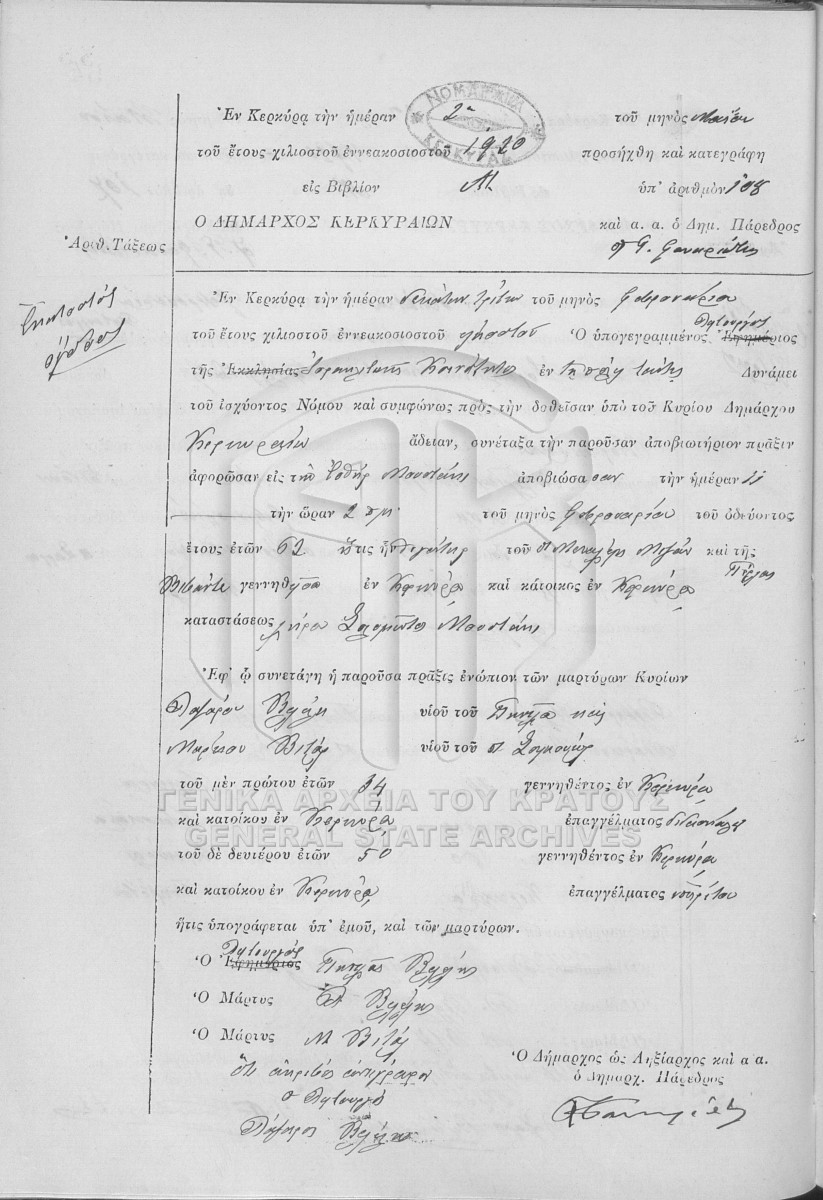 ΝΟΜΑΡΧΙΑ ΚΕΡΚΥΡΑΣ
Ἐν Κερκύρᾳ τὴν ἡμέραν 2α τοῦ μηνὸς Μαΐου
τοῦ ἔτους χιλιοστοῦ ἐννεακοσιοστοῦ 1920 προσήχθη καὶ κατεγράφη
εἰς Βιβλίον Μ. ὑπ' ἀριθμὸν 108
Ο ΔΗΜΑΡΧΟΣ ΚΕΡΚΥΡΑΙΩΝ καὶ α. α. ὁ Δημ. Πάρεδρος
Ἀριθ. Τάξεως
Ἑκατοστός
ὄγδοος
Ἐν Κερκύρᾳ τὴν ἡμέραν δεκάτην τρίτην τοῦ μηνὸς Φεβρουαρίου
τοῦ ἔτους χιλιοστοῦ ἐννεακοσιοστοῦ εἰκοστοῦ Ὁ ὑπογεγραμμένος Λητουργός Ἐφημέριος
τῆς Ἐκκλησίας Ἰσραηλιτικῆς Κοινότητος ἐν τῇ πόλει ταύτῃ Δυνάμει
τοῦ ἰσχύοντος Νόμου καὶ συμφώνως πρὸς τὴν δοθεῖσαν ὑπὸ τοῦ Κυρίου Δημάρχου
Κερκυραίων ἄδειαν, συνέταξα τὴν παροῦσαν ἀποβιωτήριον πρᾶξιν
ἀφορῶσαν εἰς τὴν Ἐσθὴρ Μουστάκη ἀποβιώσασαν τὴν ἡμέραν 11
τὴν ὥραν 2 π.μ. τοῦ μηνὸς Φεβρουαρίου τοῦ ὁδεύοντος
ἔτους ἐτῶν 62 ἥτις ἦν θυγάτηρ τοῦ καὶ τῆς
Βιβάντε γεννηθεῖσα ἐν Κερκύρᾳ καὶ κάτοικος ἐν Κερκύρᾳ
καταστάσεως χήρα Σολομῶντος Μουστάκη
Ἐφ' ᾧ συνετάγη ἡ παροῦσα πρᾶξις ἐνώπιον τῶν μαρτύρων Κυρίων
Λαζάρου Βελέλη υἱοῦ τοῦ Πινχᾶ καὶ
Μάρκου Βιτάλ υἱοῦ τοῦ
τοῦ μὲν πρώτου ἐτῶν 34 γεννηθέντος ἐν Κερκύρᾳ
καὶ κατοίκου ἐν Κερκύρᾳ ἐπαγγέλματος διδασκάλου
τοῦ δὲ δευτέρου ἐτῶν 50 γεννηθέντος ἐν Κερκύρᾳ
καὶ κατοίκου ἐν Κερκύρᾳ ἐπαγγέλματος ὑπηρέτου
ἥτις ὑπογράφεται ὑπ' ἐμοῦ, καὶ τῶν μαρτύρων.
Ὁ Λητουργός Ἐφημέριος Πινχᾶς Βελέλης
Ὁ Μάρτυς Λ. Βελέλης
Ὁ Μάρτυς Μ Βιτάλ
Ὅτι ἀκριβὲς ἀντίγραφον
Ὁ Λητουργός
Λάζαρος Βελέλης
Ὁ Δήμαρχος ὡς Ληξίαρχος καὶ α α.
ὁ Δημαρχ. Πάρεδρος
ΓΕΝΙΚΑ ΑΡΧΕΙΑ ΤΟΥ ΚΡΑΤΟΥΣ
GENERAL STATE ARCHIVES